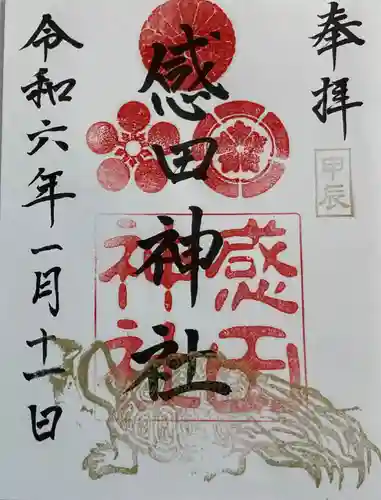 奉拝
甲辰
感田神社
感田神社
令和六年一月十一日